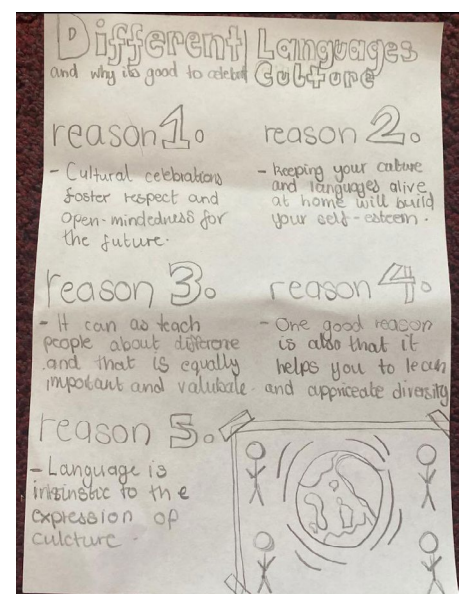 Different Languages
and why its good to celebrate Culture
reason 1.
- Cultural celebrations
foster respect and
open-mindedness for
the future.
reason 2.
- keeping your culture
and languages alive
at home will build
your self-esteem.
reason 3.
- It can as teach
people about differone
and that is equally
important and valubale.
reason 4.
- One good reason
is also that it
helps you to learn
and appriceate diversity
reason 5.
- Language is
intsinstic to the
expression of
culcture.